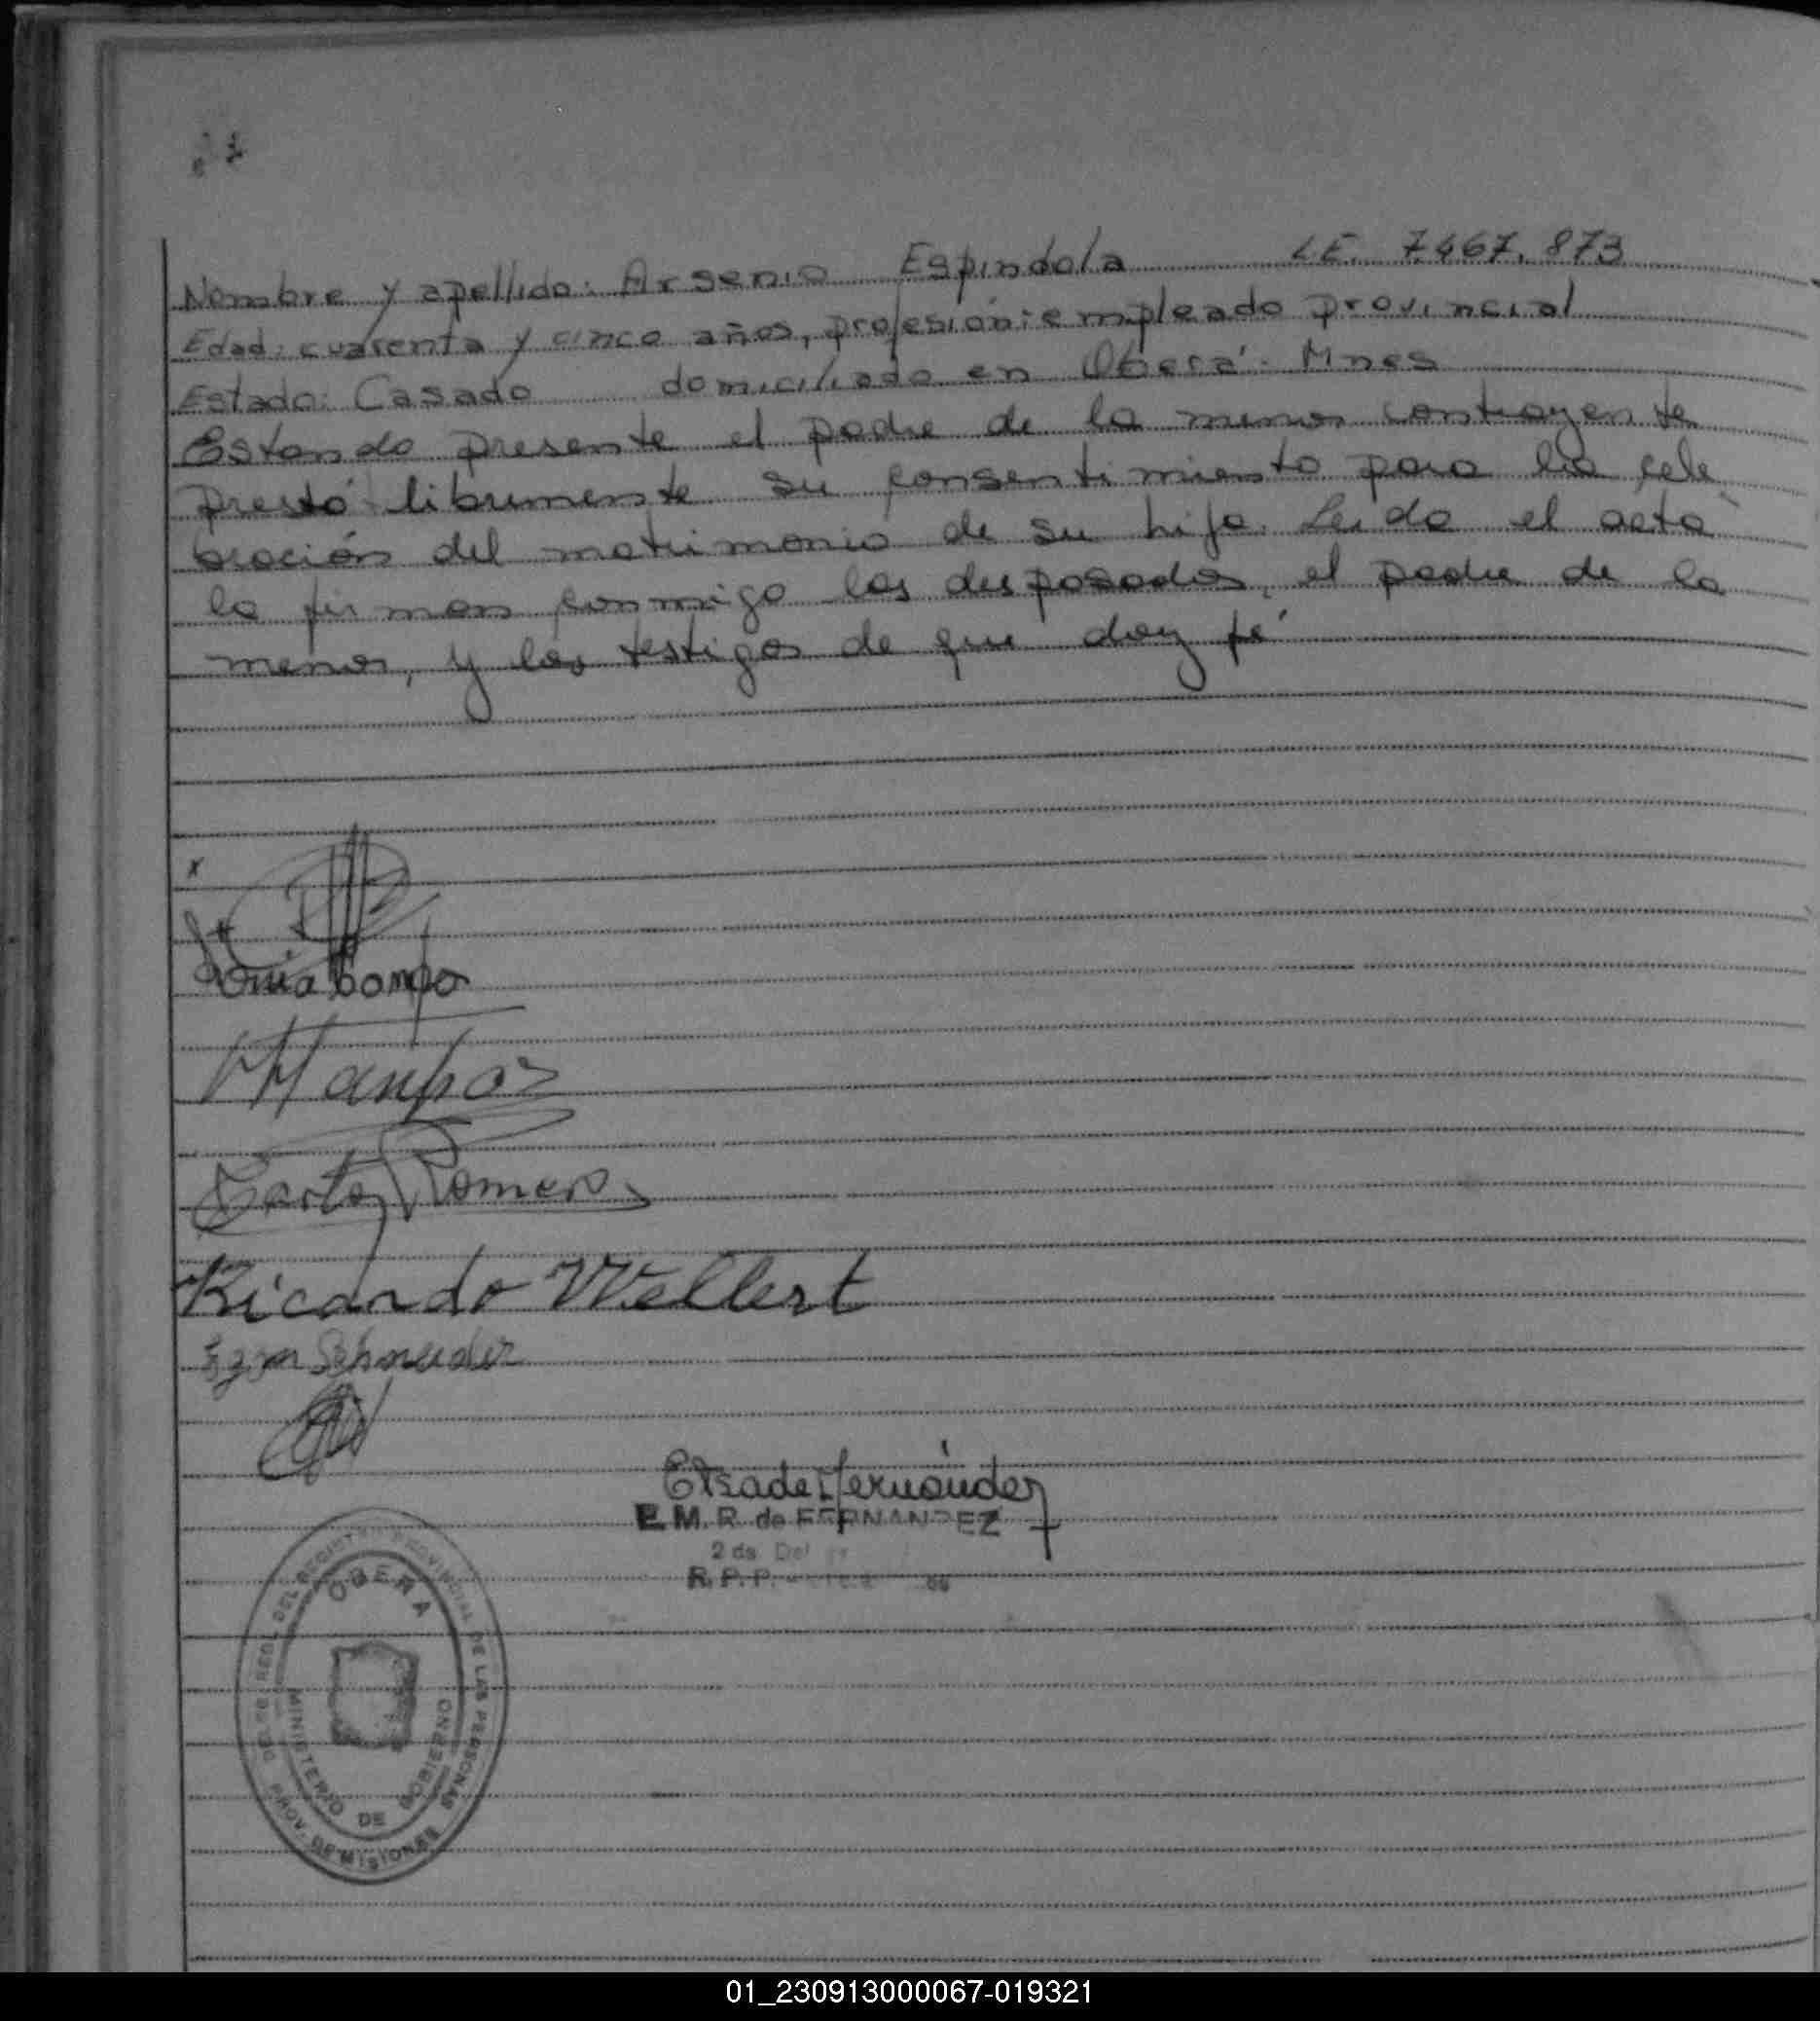 Nombre y apellido: Arsenio Espindola L.E. 7467.873
Edad: cuarenta y cinco años, profesión: empleado provincial
Estado: Casado domiciliado en Oberá. Mnes
Estando presente el padre de la menor contrayente
prestó libremente su consentimiento para la cele
bración del matrimonio de su hija. Leida el acta
la firman conmigo los desposados, el padre de la
menor, y los testigos de que doy fé
x
Carlos Romero
Ricardo Wellert
Egon Schneider
Elsa de Fernández
E. M. R. de FERNANDEZ
2 da
R. P. P.
DEL REGISTRO PROVINCIAL DE LAS PERSONAS
OBERA
MINISTERIO DE GOBIERNO
PROV. DE MISIONES
01_230913000067-019321